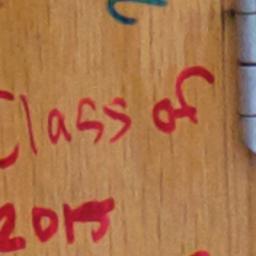 Class of
2015